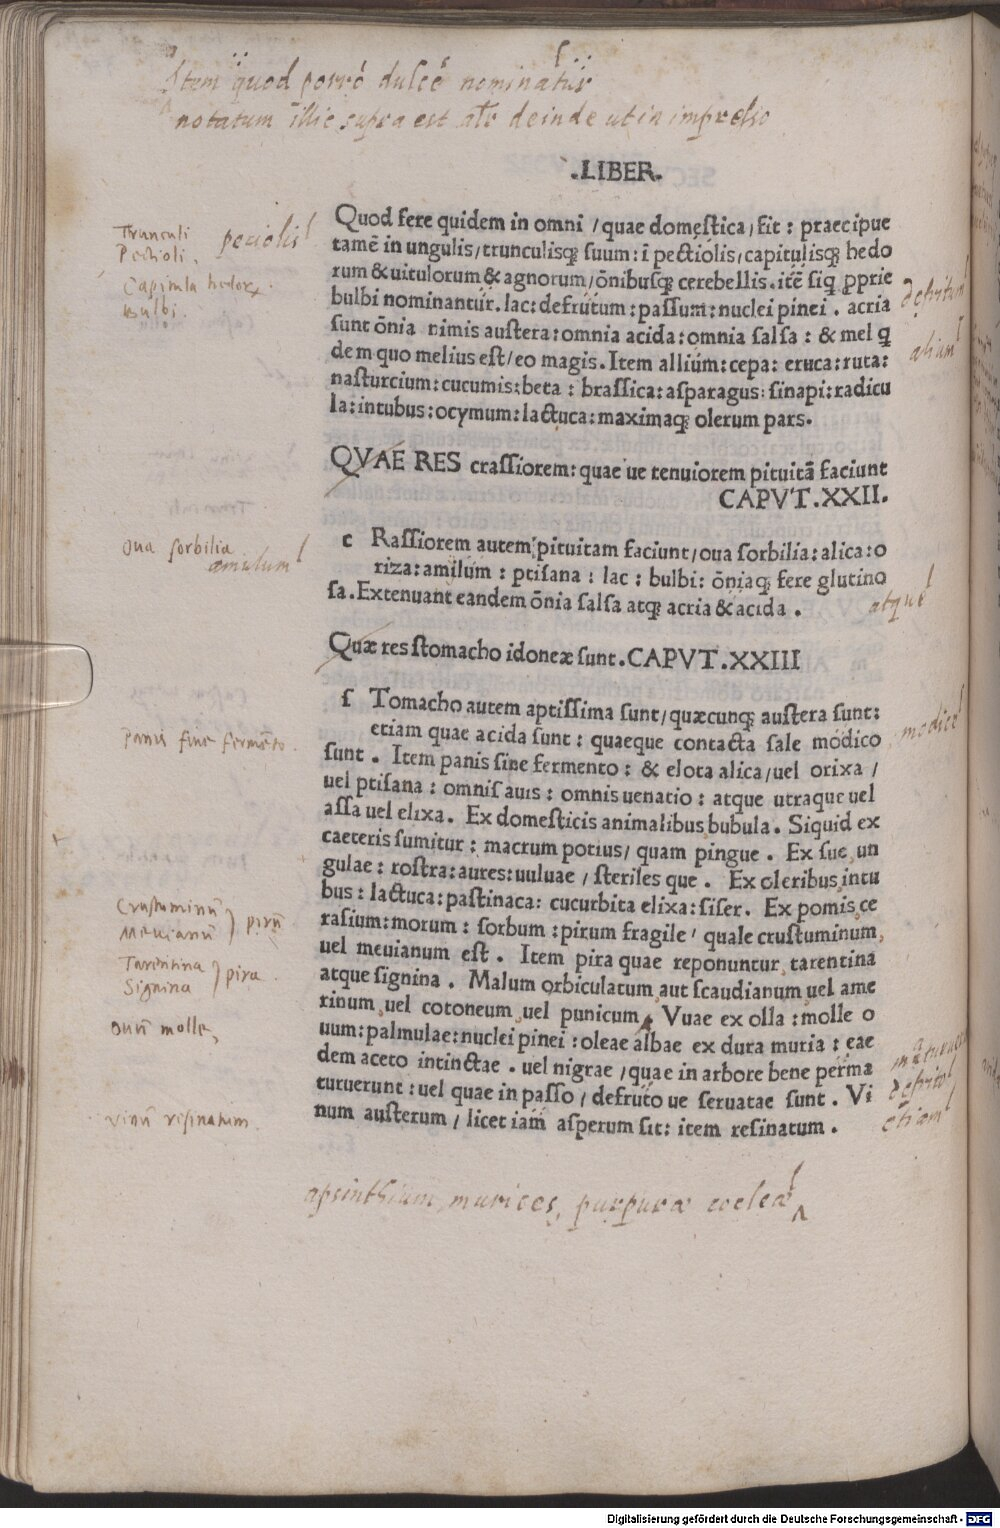 Item quod porró dulcé nominatur
notatum illic supra est alr deinde ut in impresso
.LIBER.
Quod fere quidem in omni / quae domestica, fit : praecipue
tamē in ungulis, trunculisq; suum: ī pectiolis, capitulisq; hedo
rum & uitulorum & agnorum, ōnibusq; cerebellis. itē siq pprie
bulbi nominantur. lac: defrutum: passum: nuclei pinei . acria
sunt ōnia nimis austera: omnia acida: omnia salsa : & mel q
dem quo melius est/ eo magis. Item allium: cepa: eruca: ruta:
nasturcium: cucumis: beta : brassica: asparagus: sinapi: radicu
la: intubus: ocymum: lactuca: maximaq; olerum pars.
Trunculi
Pectioli.
Capitula hedorꝝ.
Bulbi.
peciolis
defritum
alium
QVAE RES crassiorem: quae ue tenuiorem pituitā faciunt
CAPVT.XXII.
c Rassiorem autem pituitam faciunt/ oua sorbilia: alica: o
riza: amilum : ptisana : lac : bulbi: ōniaq; fere glutino
sa. Extenuant eandem ōnia salsa atq; acria & acida .
Oua sorbilia
amulum
atque
Quæ res stomacho idoneæ sunt. CAPVT.XXIII
s Tomacho autem aptissima sunt/ quæcunq; austera sunt:
etiam quae acida sunt : quaeque contacta sale modico
sunt . Item panis sine fermento : & elota alica/ uel orixa /
uel ptisana : omnis auis : omnis uenatio : atque utraque uel
assa uel elixa. Ex domesticis animalibus bubula. Siquid ex
caeteris sumitur : macrum potius/ quam pingue . Ex sue, un
gulae : rostra: aures: uuluae / steriles que . Ex oleribus, intu
bus : lactuca: pastinaca: cucurbita elixa: siser. Ex pomis, ce
rasium: morum : sorbum : pirum fragile / quale crustuminum,
uel meuianum est . Item pira quae reponuntur, tarentina
atque signina . Malum orbiculatum, aut scaudianum, uel ame
rinum, uel cotoneum, uel punicum, Vuae ex olla : molle o
uum: palmulae: nuclei pinei : oleae albae ex dura muria : eae
dem aceto intinctae . uel nigrae / quae in arbore bene perma
turuerunt : uel quae in passo / defruto ue seruatae sunt . Vi
num austerum / licet iam asperum sit: item resinatum .
modice
Panis sine fermēto.
Crustuminū
Meuianū
pirū
Tarentina
Signina
pira.
Ouū molle,
Vinū resinatum.
defrito
etiam
apsinthium, murices, purpuræ cocleæ
Digitalisierung gefördert durch die Deutsche Forschungsgemeinschaft - DFG